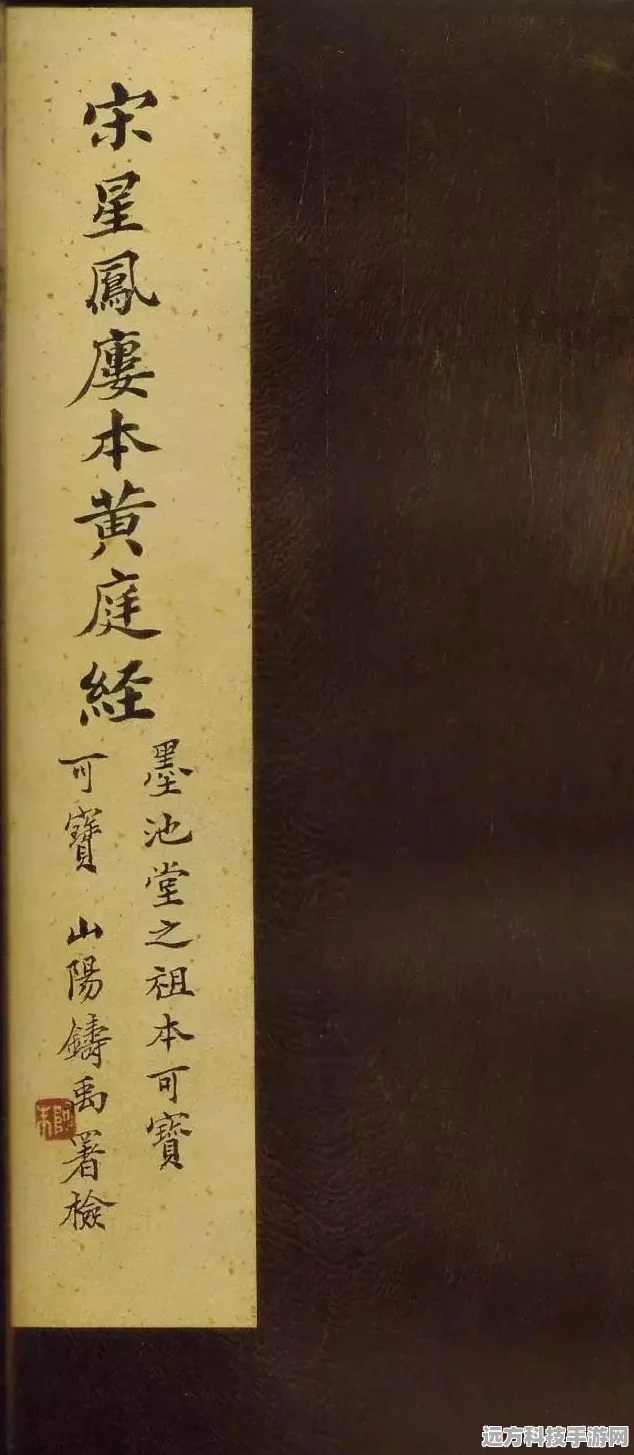 宋星鳳廔本黄庭経
墨池堂之祖本可寶
可寶 山陽鑄禹署檢
远方科技手游网